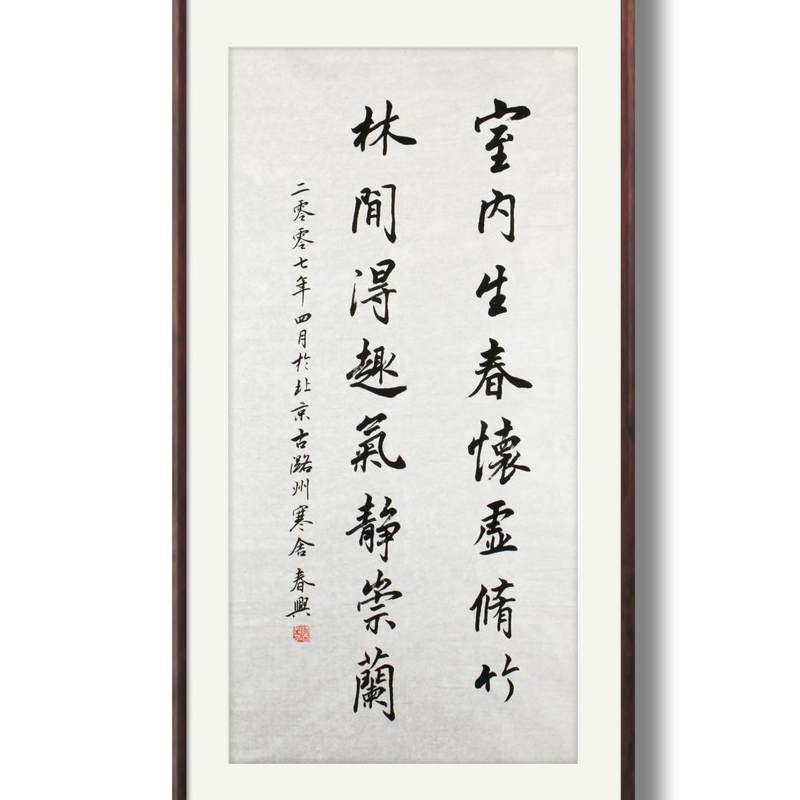 室内生春懷虛脩竹
林間得趣氣静崇蘭
二零零七年四月於北京古潞州寒舍 春興